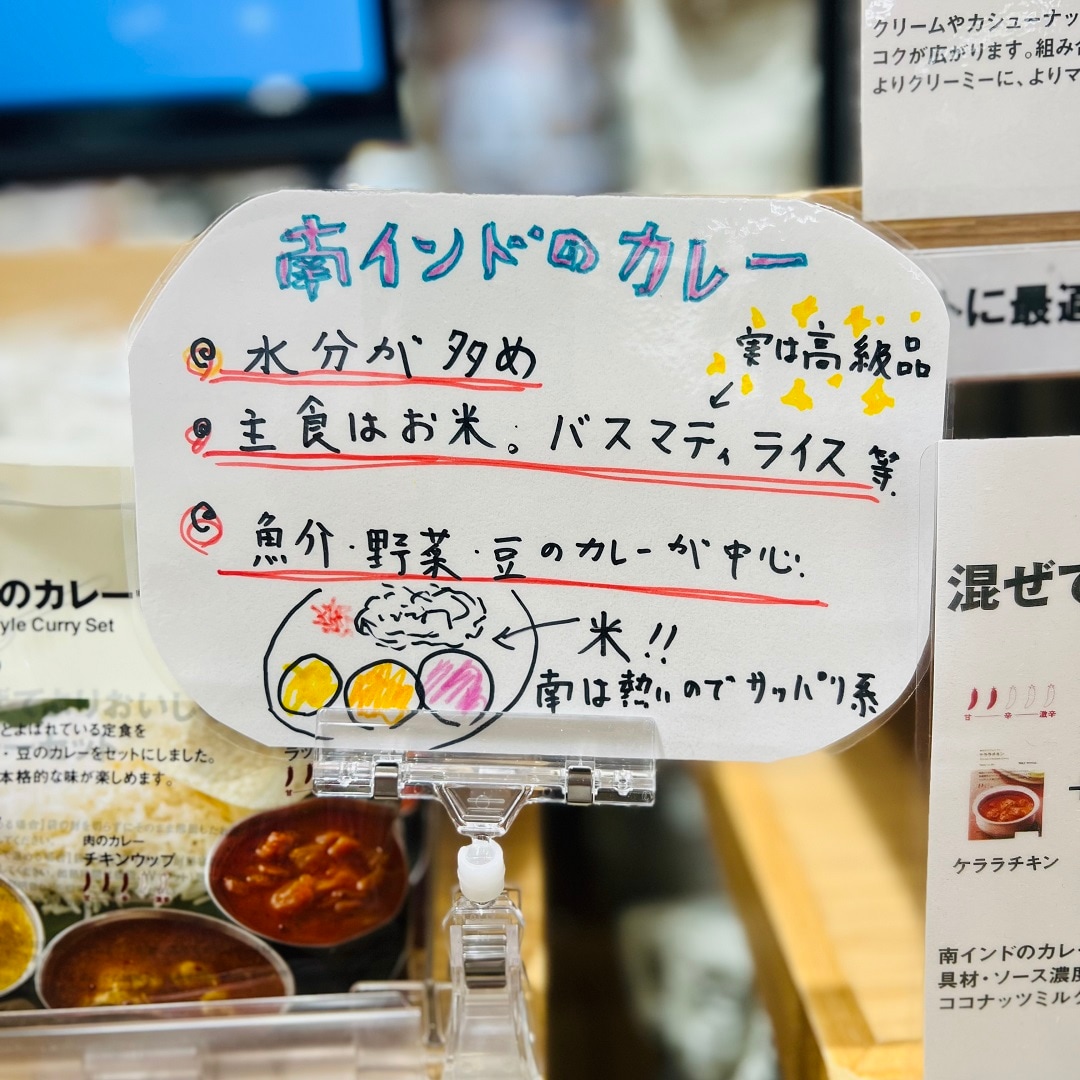 南インドのカレー
水分が多め
実は高級品
主食はお米。バスマティライス等
魚介・野菜・豆のカレーが中心.
米!!
南は熱いのでサッパリ系
クリームやカシューナッ
コクが広がります。組み
よりクリーミーに、よりマ
に最適
混ぜて
甘 辛 激辛
ケララチキン
南インドのカレー
具材・ソース濃度
ココナッツミルク
のカレー
yle Curry Set
とよばれている定食を
・豆のカレーをセットにしました。
本格的な味が楽しめます。
肉のカレー
チキンウップ